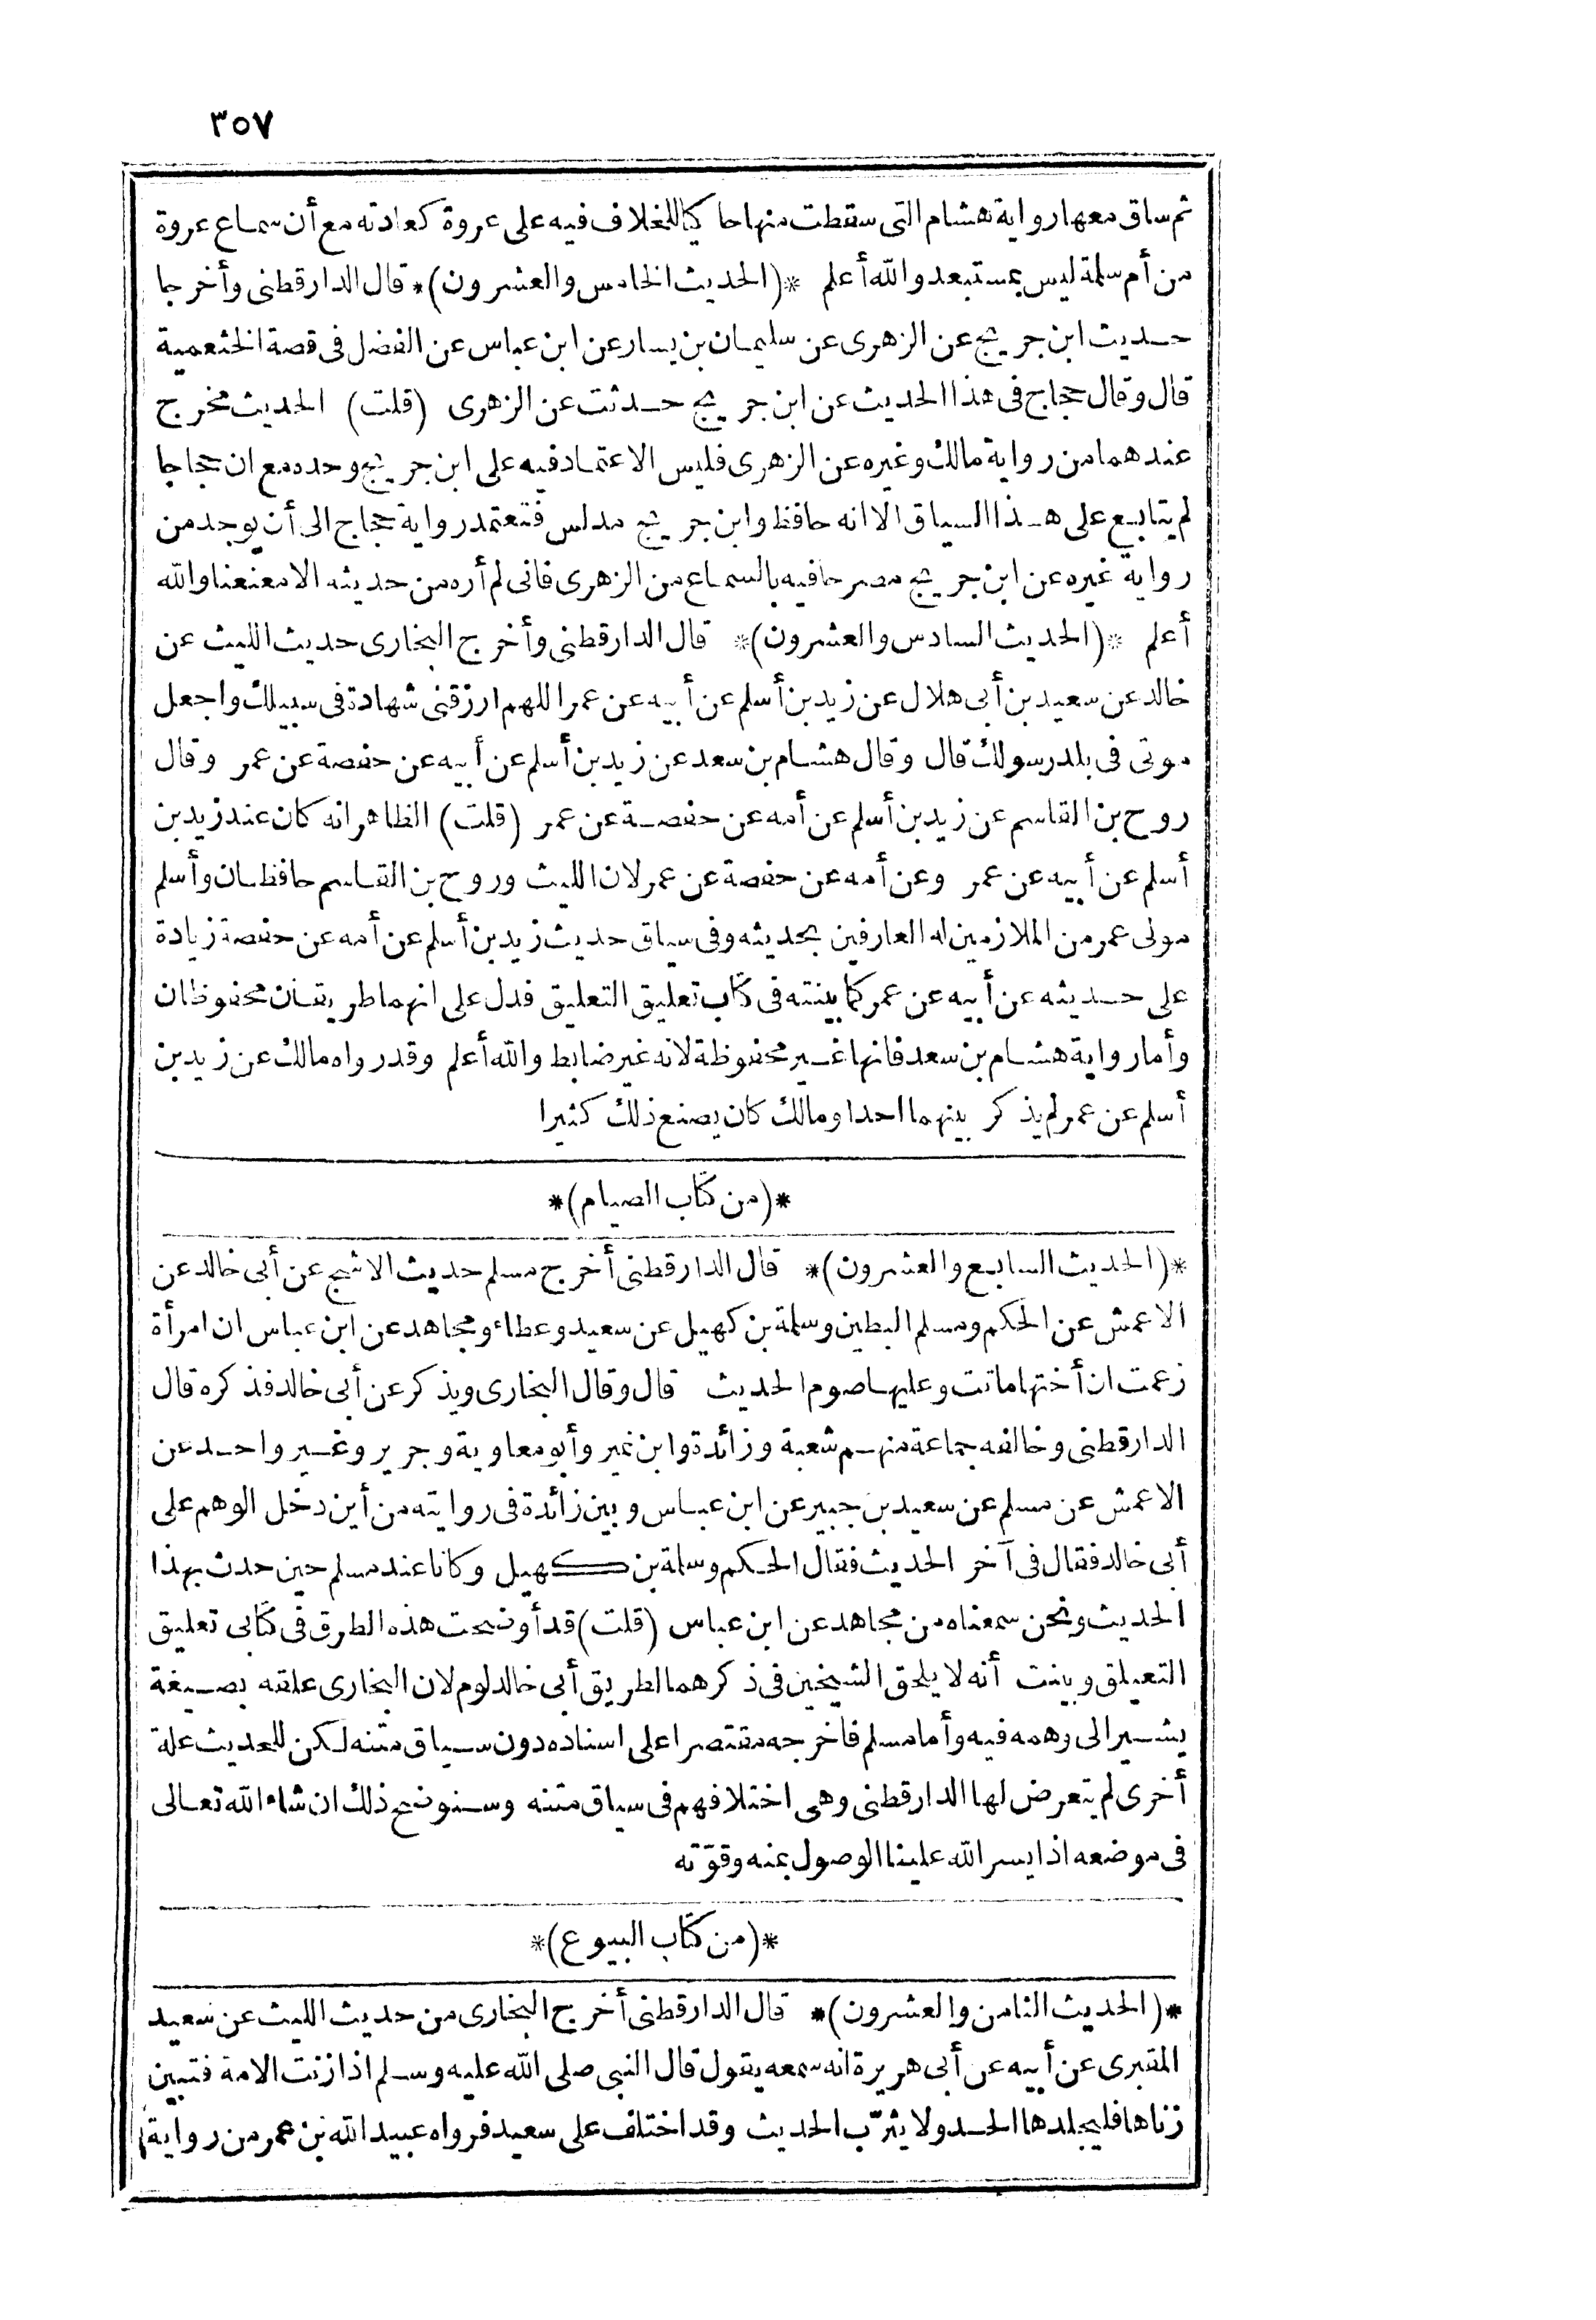 ٣٥٧
ثم ساق معها رواية هشام التى سقطت منها حا كيا للخلاف فيه على عروة كعادته مع أن سماع عروة
من أم سلمة ليس بمستبعد والله أعلم *(الحديث الخامس والعشرون)* قال الدارقطنى وأخرجا
حديث ابن جريج عن الزهرى عن سليمان بن يسار عن ابن عباس عن الفضل فى قصة الخثعمية
قال وقال حجاج فى هذا الحديث عن ابن جريج حدثت عن الزهرى (قلت) الحديث مخرج
عندهما من رواية مالك وغيره عن الزهرى فليس الاعتماد فيه على ابن جريج وحده مع ان حجاجا
لم يتابع على هذا السياق الا انه حافظ وابن جريج مدلس فتعتمد رواية حجاج الى أن يوجد من
رواية غيره عن ابن جريج مصرحا فيه بالسماع من الزهرى فانى لم أره من حديثه الا معنعنا والله
أعلم *(الحديث السادس والعشرون)* قال الدارقطنى وأخرج البخارى حديث الليث عن
خالد عن سعيد بن أبى هلال عن زيد بن أسلم عن أبيه عن عمر اللهم ارزقنى شهادة فى سبيلك واجعل
موتى فى بلد رسولك قال وقال هشام بن سعد عن زيد بن أسلم عن أبيه عن حفصة عن عمر وقال
روح بن القاسم عن زيد بن أسلم عن أمه عن حفصة عن عمر (قلت) الظاهر انه كان عند زيد بن
أسلم عن أبيه عن عمر وعن أمه عن حفصة عن عمر لان الليث وروح بن القاسم حافظان وأسلم
مولى عمر من الملازمين له العارفين بحديثه وفى سياق حديث زيد بن أسلم عن أمه عن حفصة زيادة
على حديثه عن أبيه عن عمر كما بينته فى كتاب تعليق التعليق فدل على انهما طريقان محفوظان
وأما رواية هشام بن سعد فانها غير محفوظة لانه غير ضابط والله أعلم وقد رواه مالك عن زيد بن
أسلم عن عمر لم يذكر بينهما احدا ومالك كان يصنع ذلك كثيرا
*(من كتاب الصيام)*
*(الحديث السابع والعشرون)* قال الدارقطنى أخرج مسلم حديث الاشج عن أبى خالد عن
الاعمش عن الحكم ومسلم البطين وسلمة بن كهيل عن سعيد وعطاء ومجاهد عن ابن عباس ان امرأة
زعمت ان أختها ماتت وعليها صوم الحديث قال وقال البخارى ويذكر عن أبى خالد فذكره قال
الدارقطنى وخالفه جماعة منهم شعبة وزائدة وابن نمير وأبو معاوية وجرير وغير واحد عن
الاعمش عن مسلم عن سعيد بن جبير عن ابن عباس وبين زائدة فى روايته من أين دخل الوهم على
أبى خالد فقال فى آخر الحديث فقال الحكم وسلمة بن كهيل وكانا عند مسلم حين حدث بهذا
الحديث ونحن سمعناه من مجاهد عن ابن عباس (قلت) قد أوضحت هذه الطرق فى كتابى تعليق
التعيلق وبينت أنه لا يلحق الشيخين فى ذكرهما لطريق أبى خالد لوم لان البخارى علقه بصيغة
يشير الى وهمه فيه وأما مسلم فاخرجه مقتصرا على اسناده دون سياق متنه لكن للحديث علة
أخرى لم يتعرض لها الدارقطنى وهى اختلافهم فى سياق متنه وسنوضح ذلك ان شاء الله تعالى
فى موضعه اذا يسر الله علينا الوصول بمنه وقوّته
*(من كتاب البيوع)*
*(الحديث الثامن والعشرون)* قال الدارقطنى أخرج البخارى من حديث الليث عن سعيد
المقبرى عن أبيه عن أبى هريرة انه سمعه يقول قال النبى صلى الله عليه وسلم اذا زنت الامة فتبين
زناها فليجلدها الحد ولا يثرّب الحديث وقد اختلف على سعيد فرواه عبيد الله بن عمر من رواية